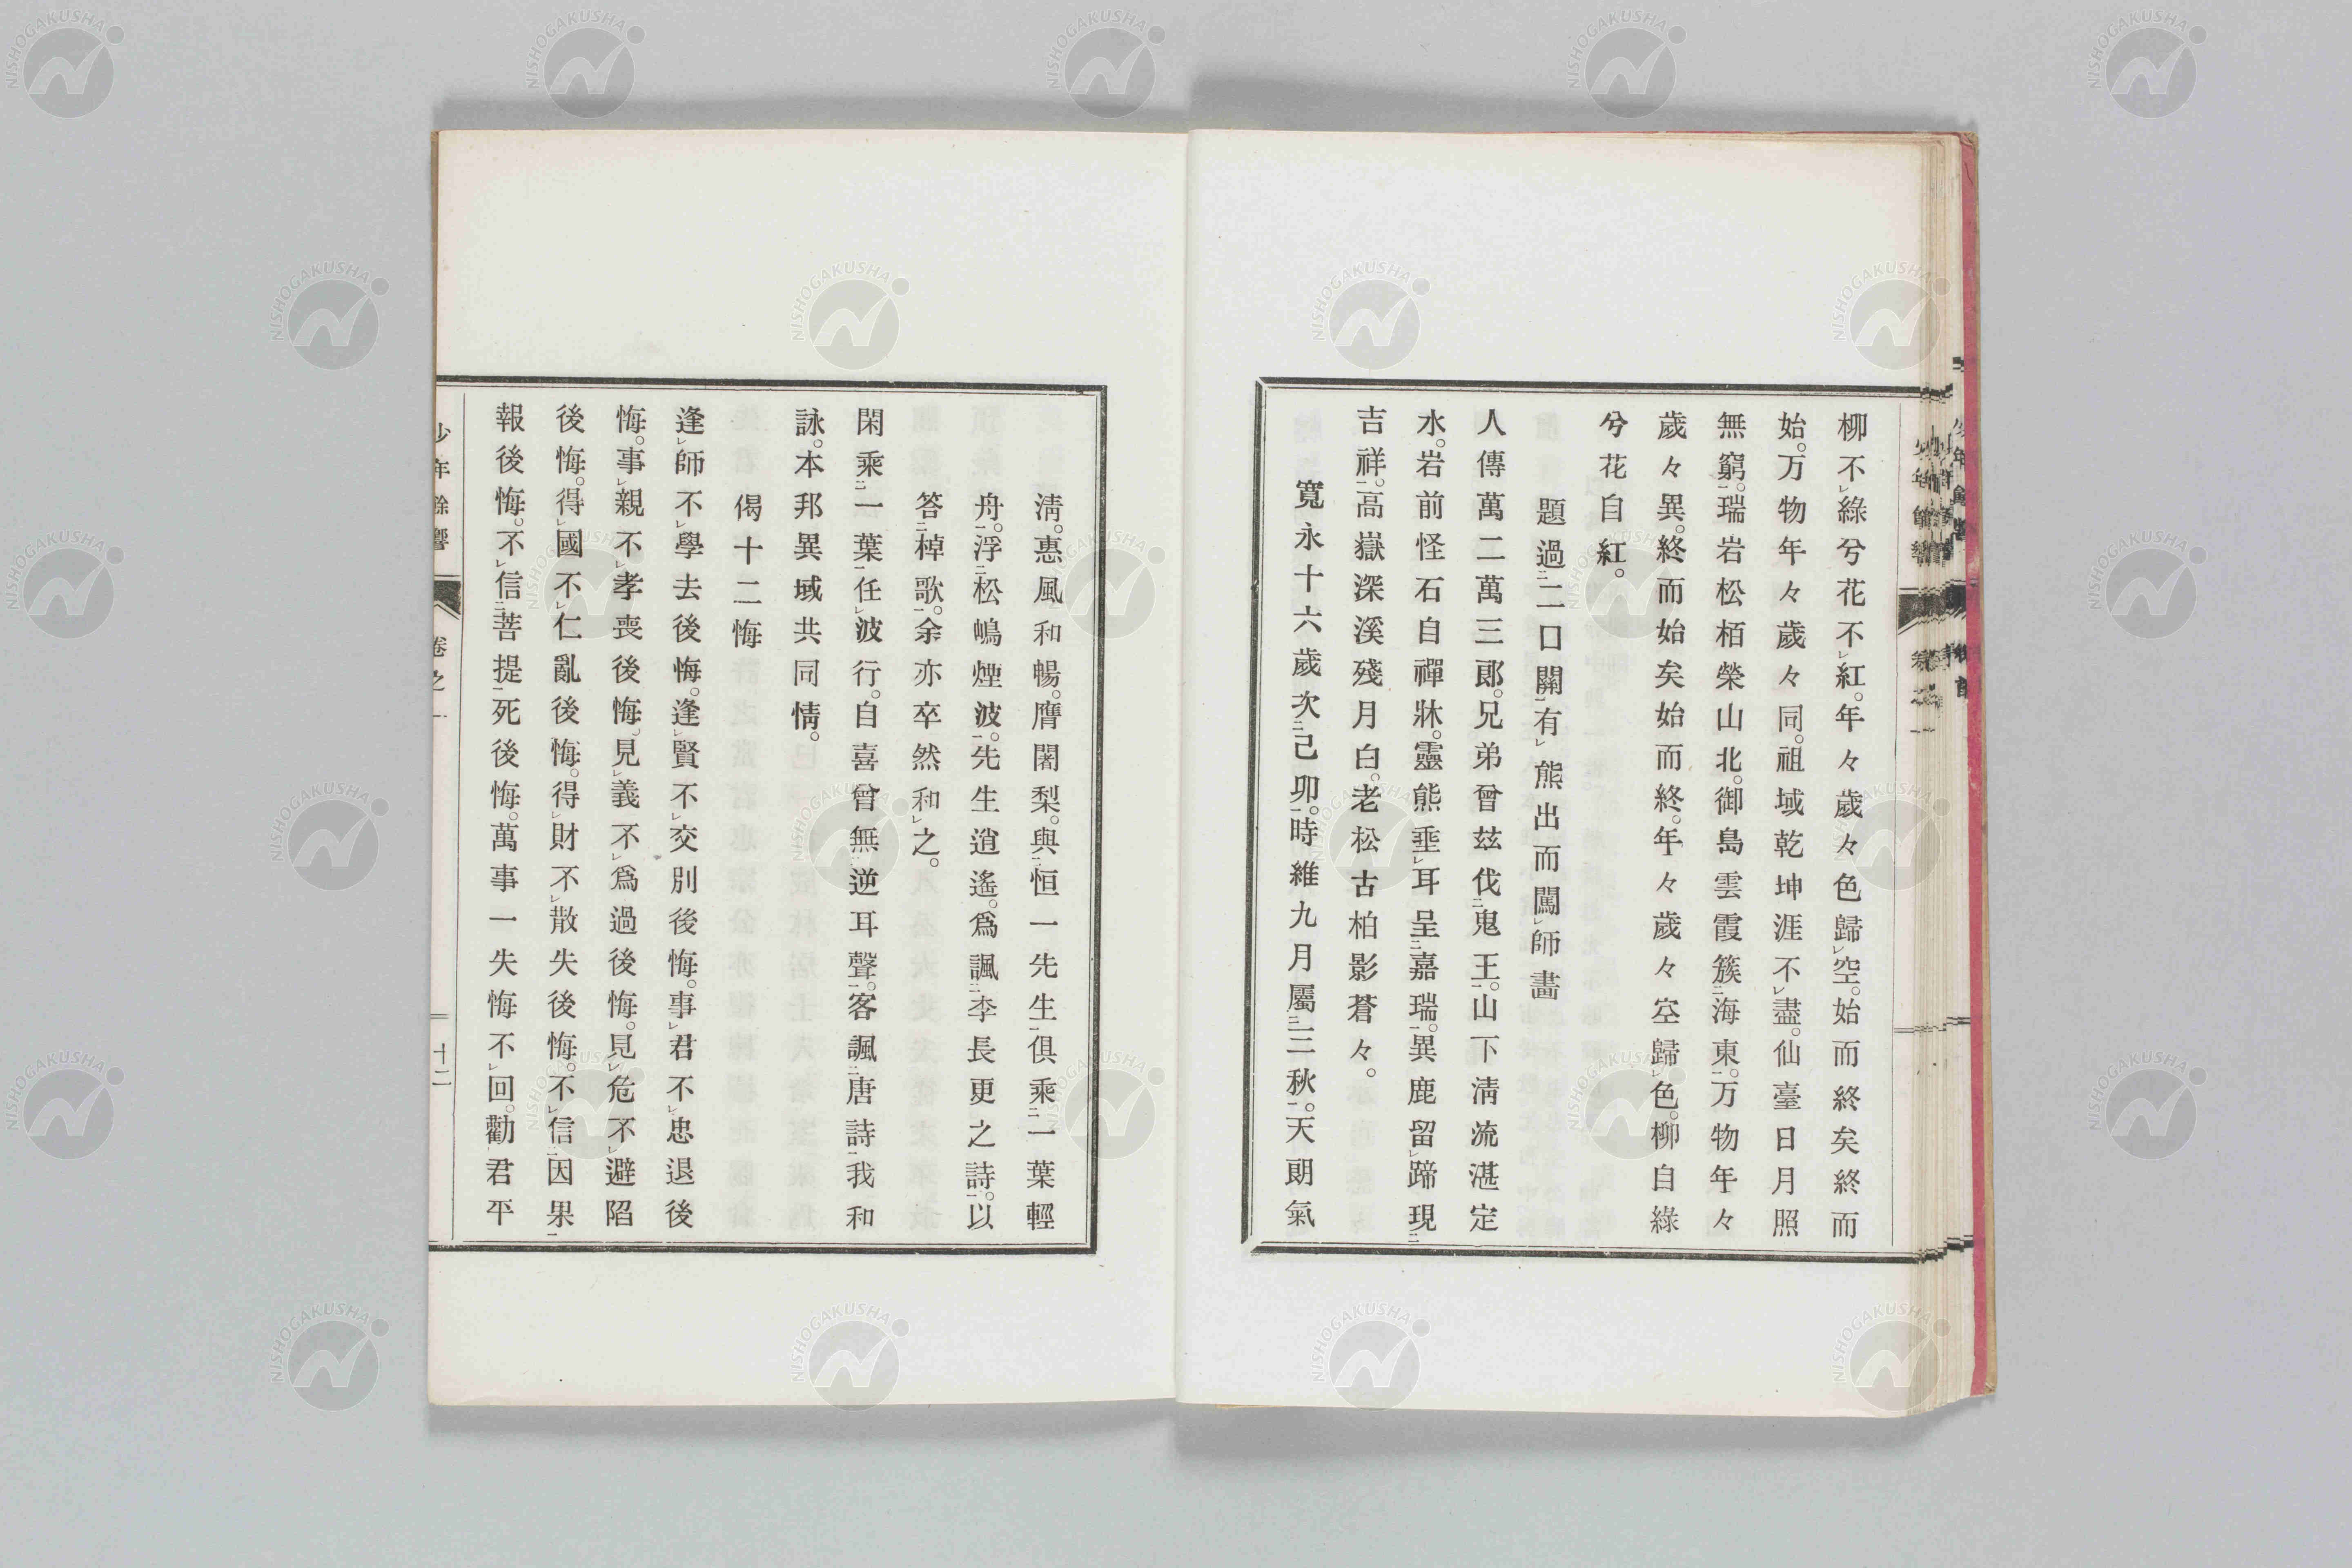 柳不㆑綠兮花不㆑紅。年々歲々色歸㆑空。始而終矣終而
始。万物年々歲々同。祖域乾坤涯不㆑盡。仙臺日月照
無窮。瑞岩松栢榮山北。御島雲霞簇㆓海東㆒。万物年々
歲々異。終而始矣始而終。年々歲々空歸㆑色。柳自綠
兮花自紅。
題過㆓二口關㆒有㆑熊出而闖㆑師畵
人傳萬二萬三郞。兄弟曾玆伐㆓鬼王㆒。山下淸流湛定
水。岩前怪石自禪牀。靈熊垂㆑耳呈㆓嘉瑞㆒。異鹿留㆑蹄現㆓
吉祥㆒。高嶽深溪殘月白。老松古柏影蒼々。
寬永十六歲次㆓己卯㆒。時維九月屬㆓三秋㆒。天朗氣
淸。惠風和暢。膺闍梨。與㆓恒一先生㆒俱乘㆓一葉輕
舟㆒。浮㆓松嶋煙波㆒。先生逍遙。爲諷㆓李長更之詩㆒。以
答㆓棹歌㆒。余亦卒然和㆑之。
閑乘㆓一葉㆒任㆑波行。自喜曾無㆓逆耳聲㆒。客諷㆓唐詩㆒我和
詠。本邦異域共同情。
偈十二悔
逢㆑師不㆑學去後悔。逢㆑賢不㆑交別後悔。事㆑君不㆑忠退後
悔。事㆑親不㆑孝喪後悔。見㆑義不㆑爲過後悔。見㆑危不㆑避陷
後悔。得㆑國不㆑仁亂後悔。得㆑財不㆑散失後悔。不㆑信㆓因果㆒
報後悔。不㆑信㆓菩提㆒死後悔。萬事一失悔不㆑回。勸君平
少年餘響
卷之一
十二
NISHOGAKUSHA